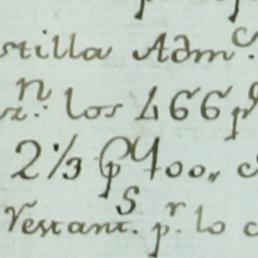 stilla Adm.c
z.n los 466 p
2 1/3 p 400,, c
restant.s p.r lo